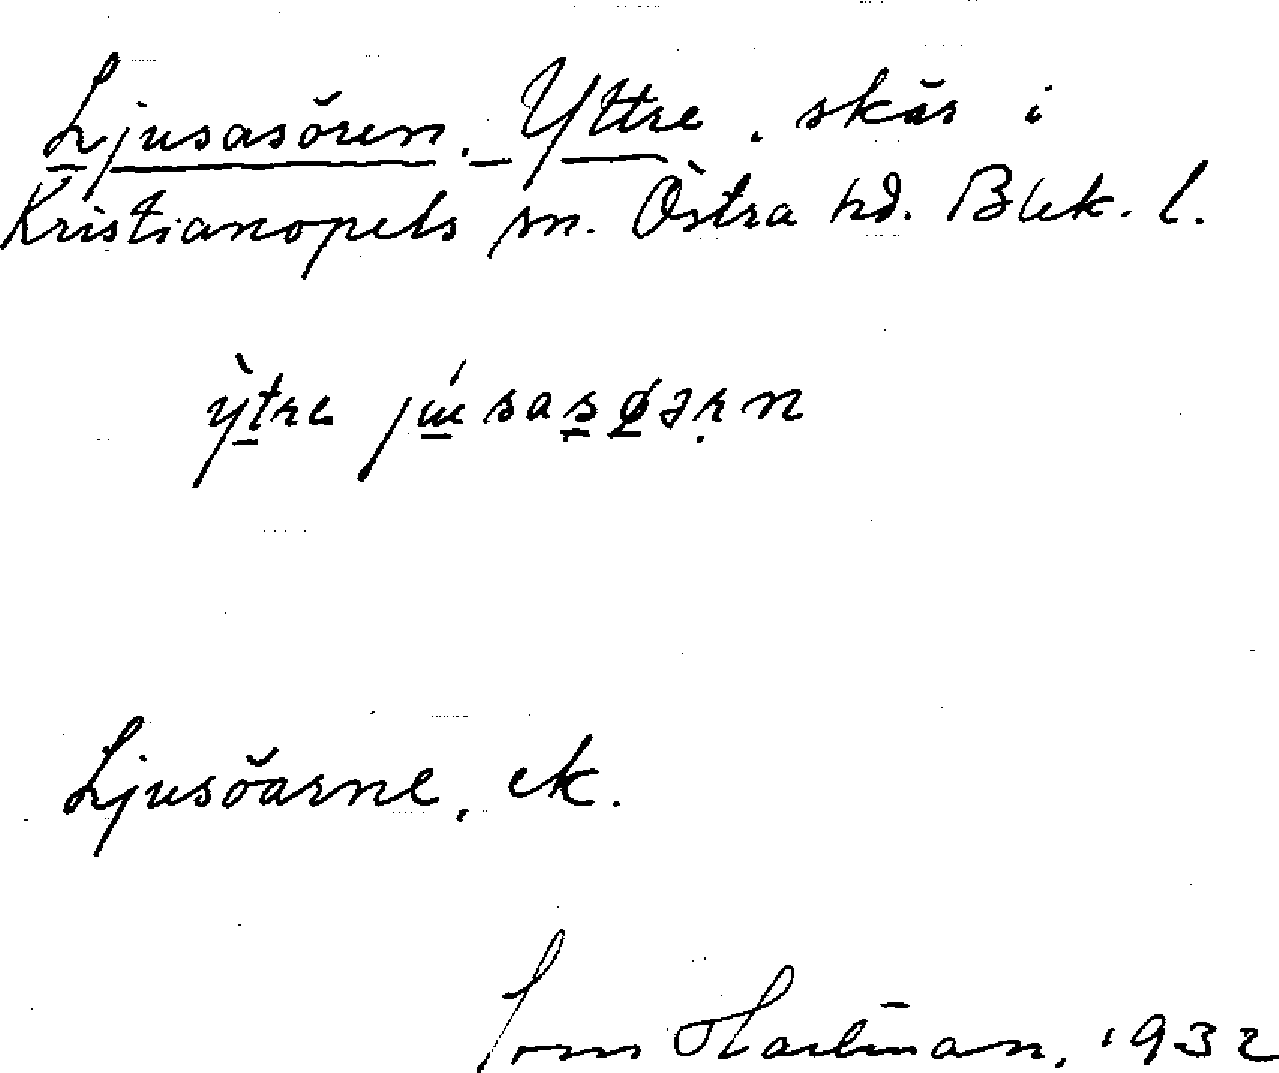 Ljusasören. Yttre. skär i
Kristianopels sn. Östra hd. Blek. l.
ỳtre júsasøərn
Ljusöarne, ek.
Hartman. 1932